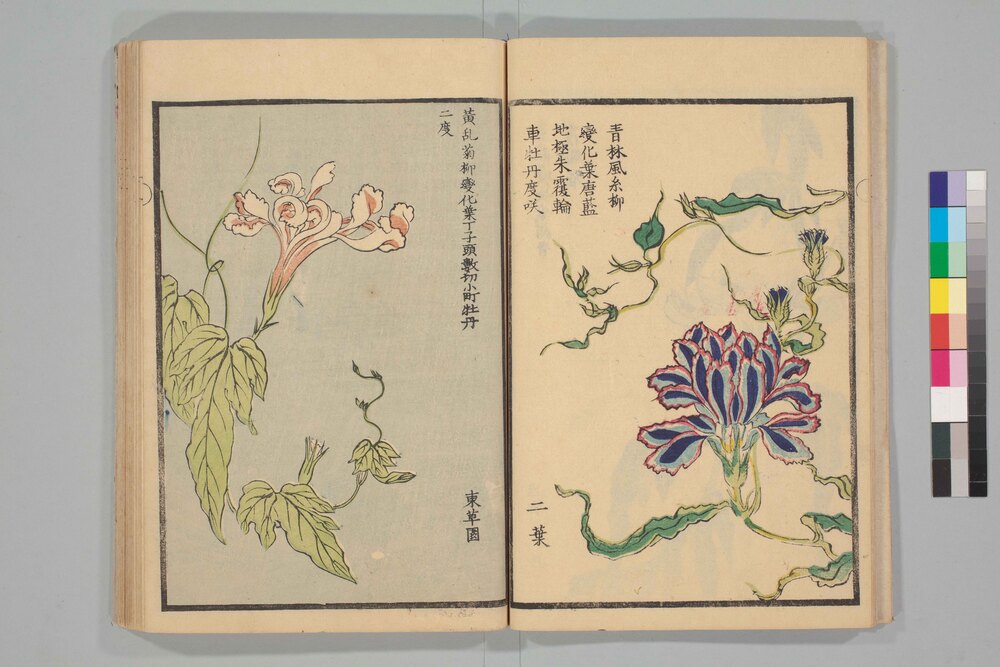 青林風糸柳
變化葉唐藍
地極朱覆輪
車牡丹度咲
二葉
黃乱菊柳變化葉丁子頭數切小町牡丹
二度
東草園